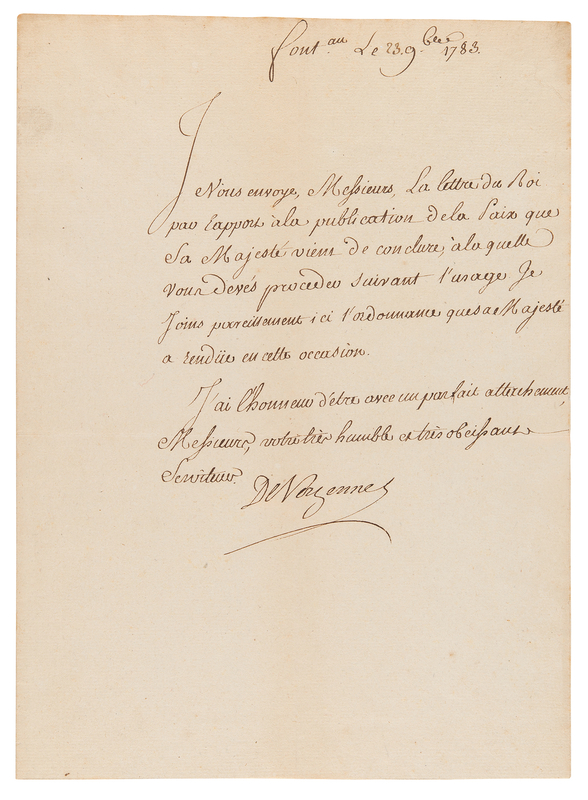 Font.au Le 23. 9.bre 1783.
Je
Vous envoye, Messieurs, La lettre du Roi
par raport à la publication de la Paix que
Sa Majesté vient de conclure, à la quelle
vous devés proceder suivant l'usage Je
Joins pareillement ici l'ordonnance que sa Majesté
a rendüe en cette occasion.
J'ai l'honneur d'etre avec un parfait attachement,
Messieurs, votre très humble et très obeissant
Serviteur.
De Vergennes